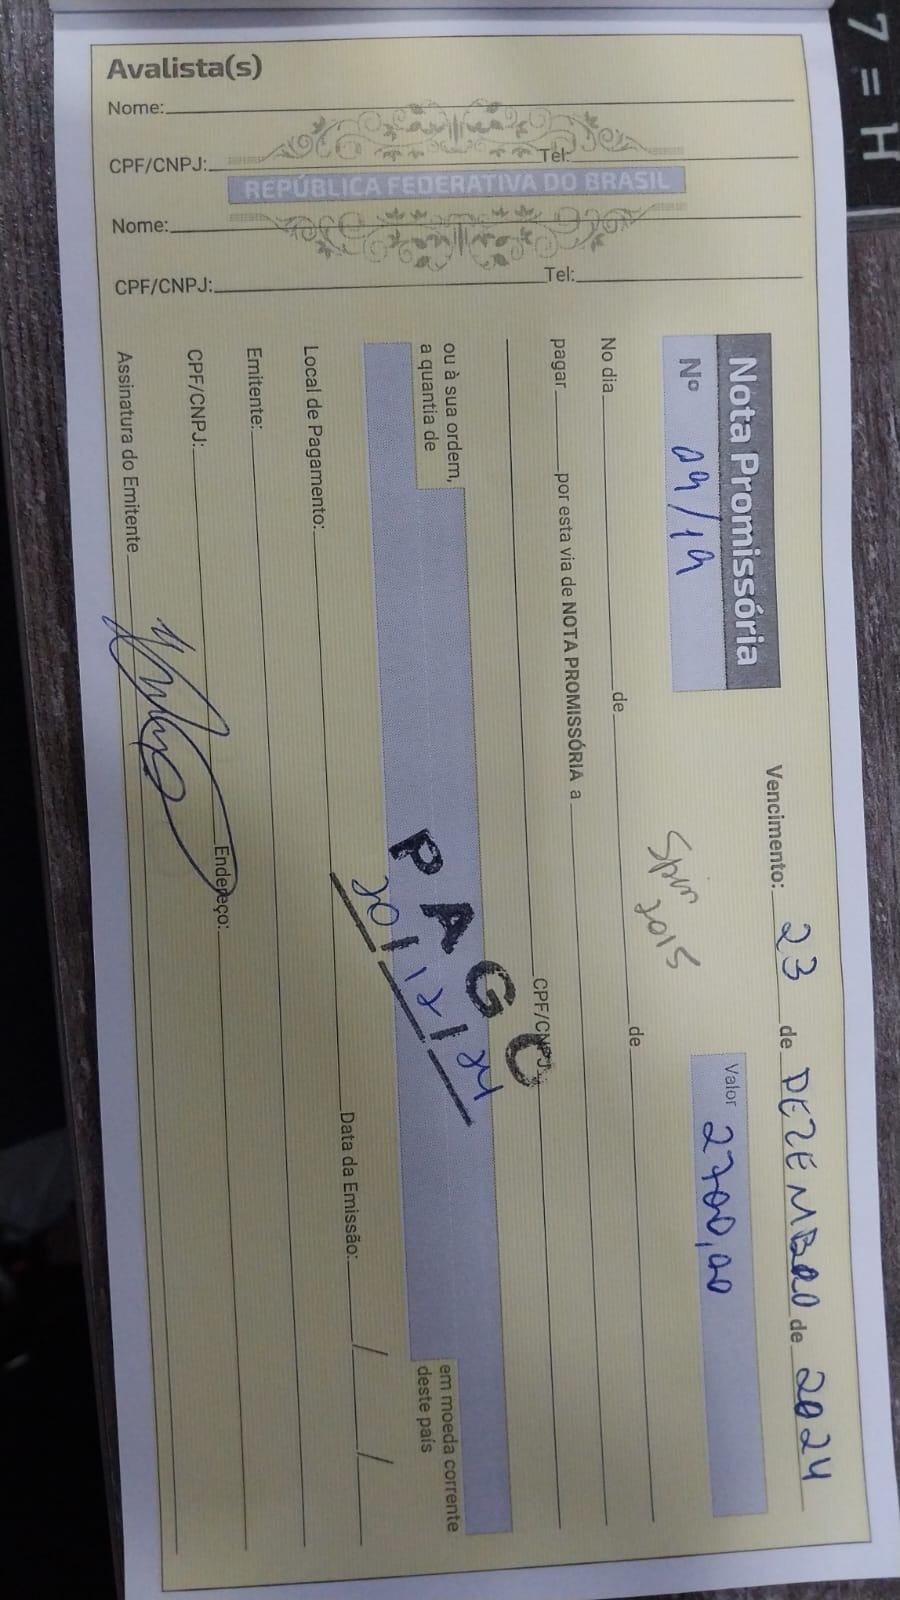 7 = H
Avalista(s)
Nome:
CPF/CNPJ: Tel:
REPÚBLICA FEDERATIVA DO BRASIL
Nome:
CPF/CNPJ: Tel:
Nota Promissória
Vencimento: 23 de DEZEMBRO de 2024
Nº 09/19
Valor 2700,00
Spin
2015
No dia de de
pagar por esta via de NOTA PROMISSÓRIA a
CPF/CNPJ:
ou à sua ordem,
a quantia de
em moeda corrente
deste país
PAGO
20/12/24
Local de Pagamento: Data da Emissão: / /
Emitente:
CPF/CNPJ: Endereço:
Assinatura do Emitente